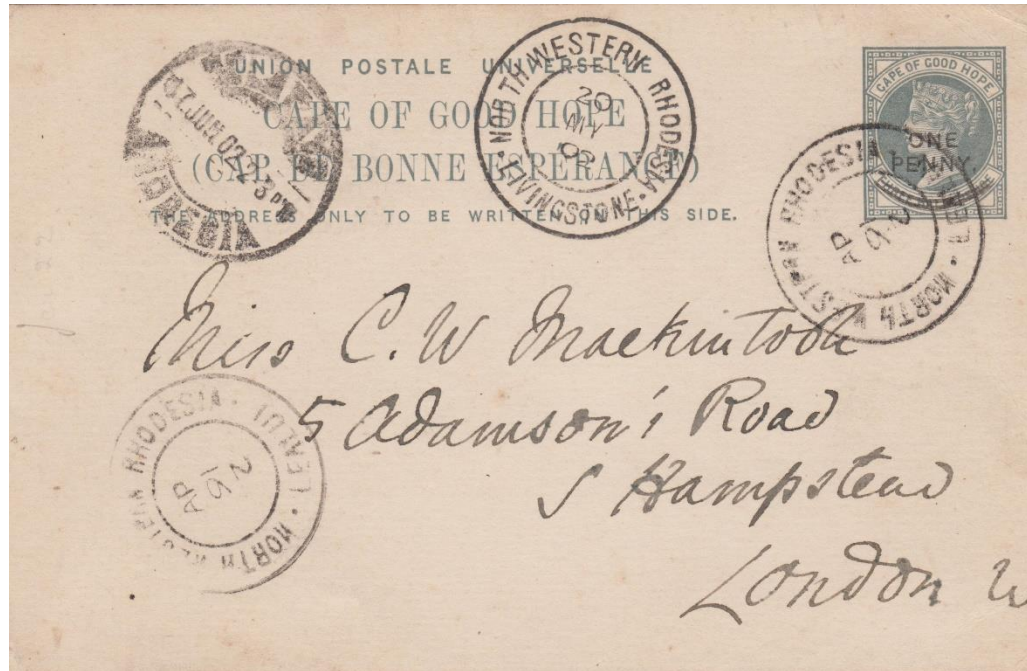 UNION POSTALE UNIVERSELLE
CAPE OF GOOD HOPE
(CAP DE BONNE ESPERANCE)
THE ADDRESS ONLY TO BE WRITTEN ON THIS SIDE.
CAPE OF GOOD HOPE
ONE
PENNY.
NORTH WESTERN RHODESIA
LIVINGSTONE
20
MY
02
NORTH WESTERN RHODESIA
AP
NORTH WESTERN RHODESIA · LEALUI
AP
Miss C. W Mackintosh
5 Adamson's Road
S Hampstead
London W